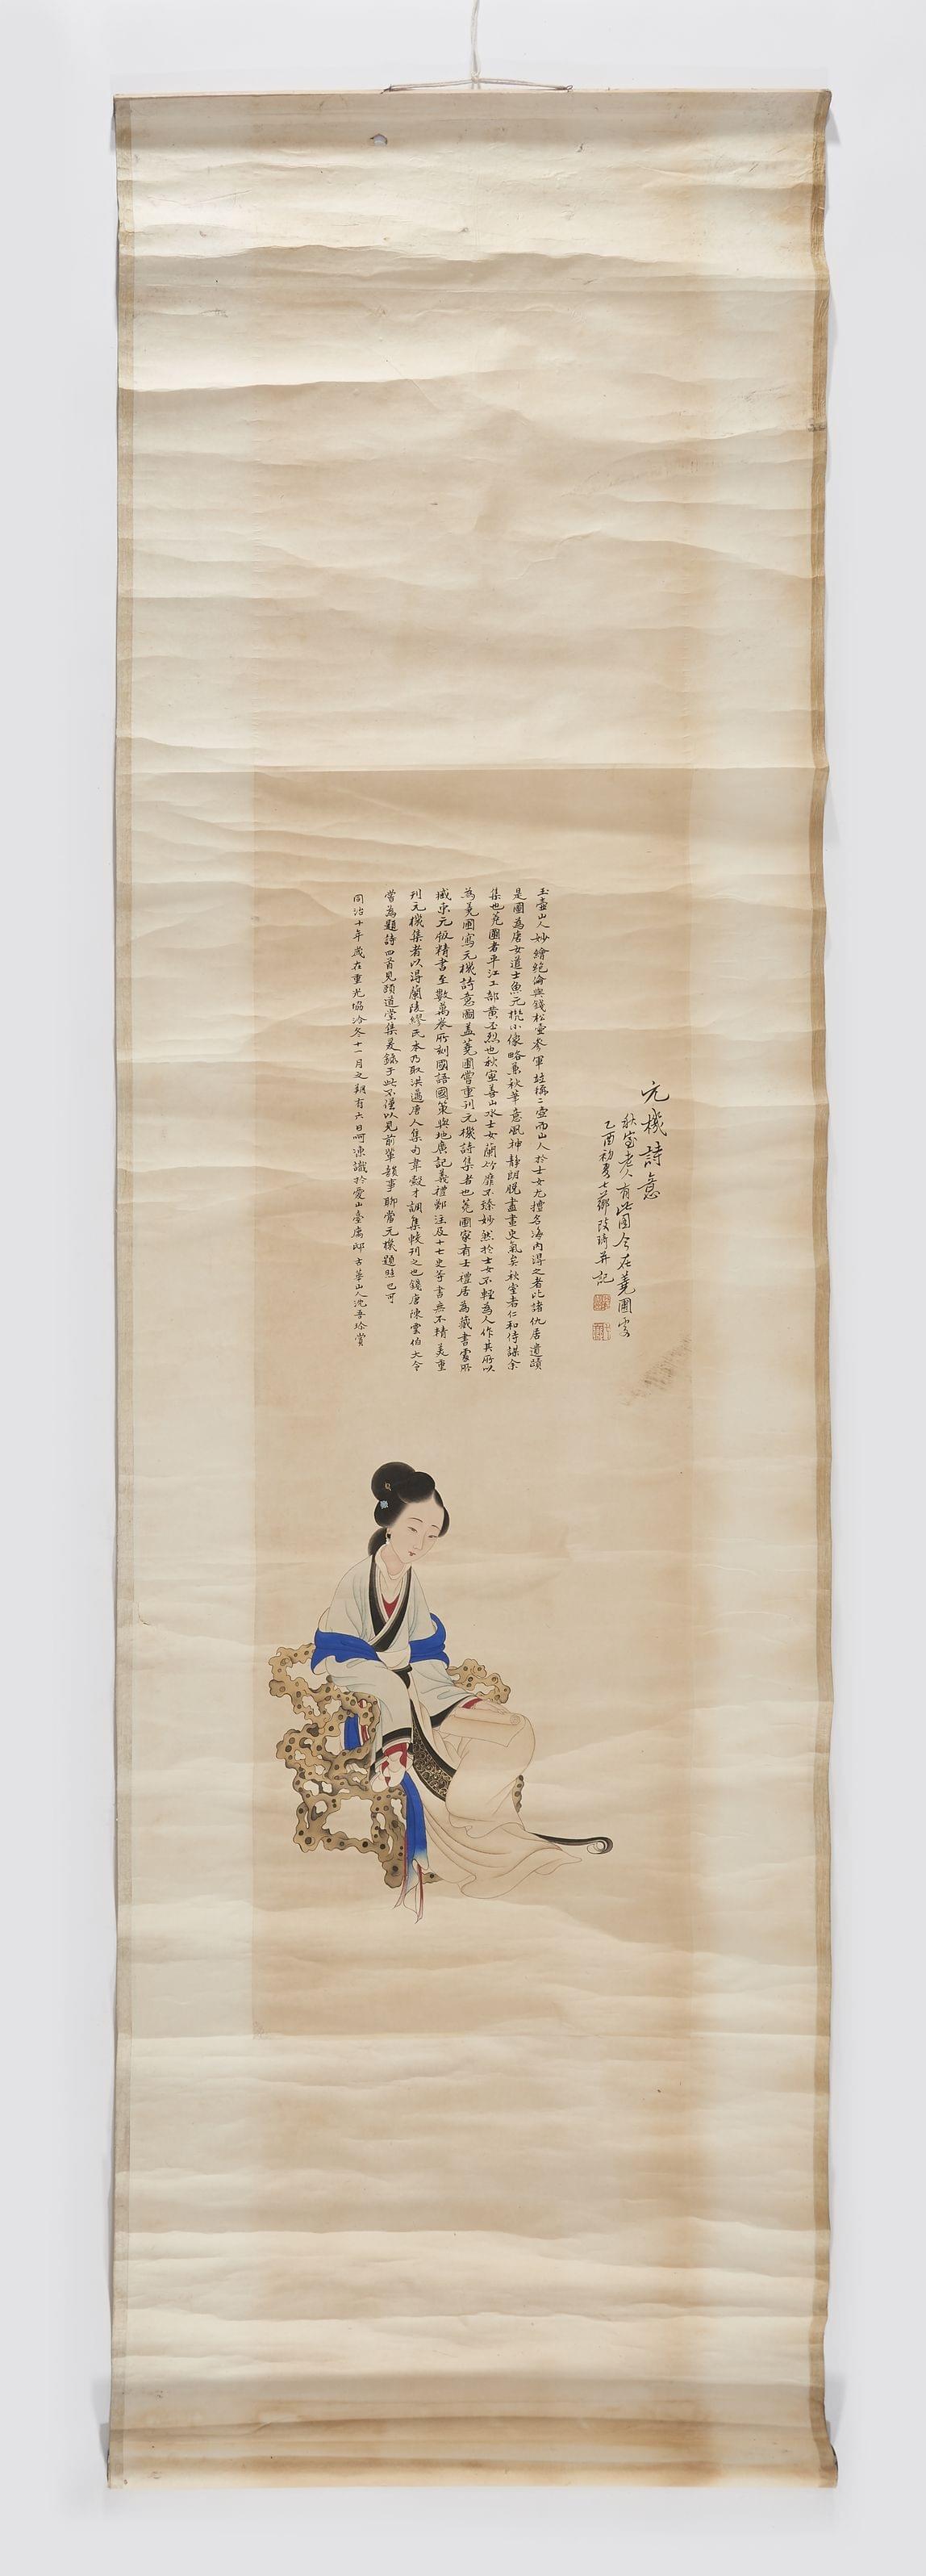 元機詩意
秋室老人有此図今在蕘圃處
乙酉初夏七薌改琦并記
玉壺山人妙繪絕倫與錢松壺參軍並稱二壺而山人於士女尤擅名海內得之者比諸仇唐遺蹟
是圖為唐女道士魚元機小像略兼秋華意風神靜朗脫盡畫史氣矣秋室者仁和侍讀余
集也蕘圃者平江工部黃丕烈也秋室善山水士女蘭竹靡不臻妙然於士女不輕為人作其所以
為蕘圃寫元機詩意圖蓋蕘圃嘗重刊元機詩集者也蕘圃家有士禮居為藏書處所
臧宋元版精書至數萬卷所刻國語國策輿地廣記義禮鄭注及十七史等書無不精美重
刊元機集者以得蘭陵繆氏本乃取洪邁唐人集句韋縠才調集較刊之也錢唐陳雲伯大令
嘗為題詩四首見頤道堂集爰錄于此不僅以見前輩韻事聊當元機題照也可
同治十年歲在重光協洽冬十一月之朔有六日呵凍識於愛山臺寓邸古華山人沈吾珍賞